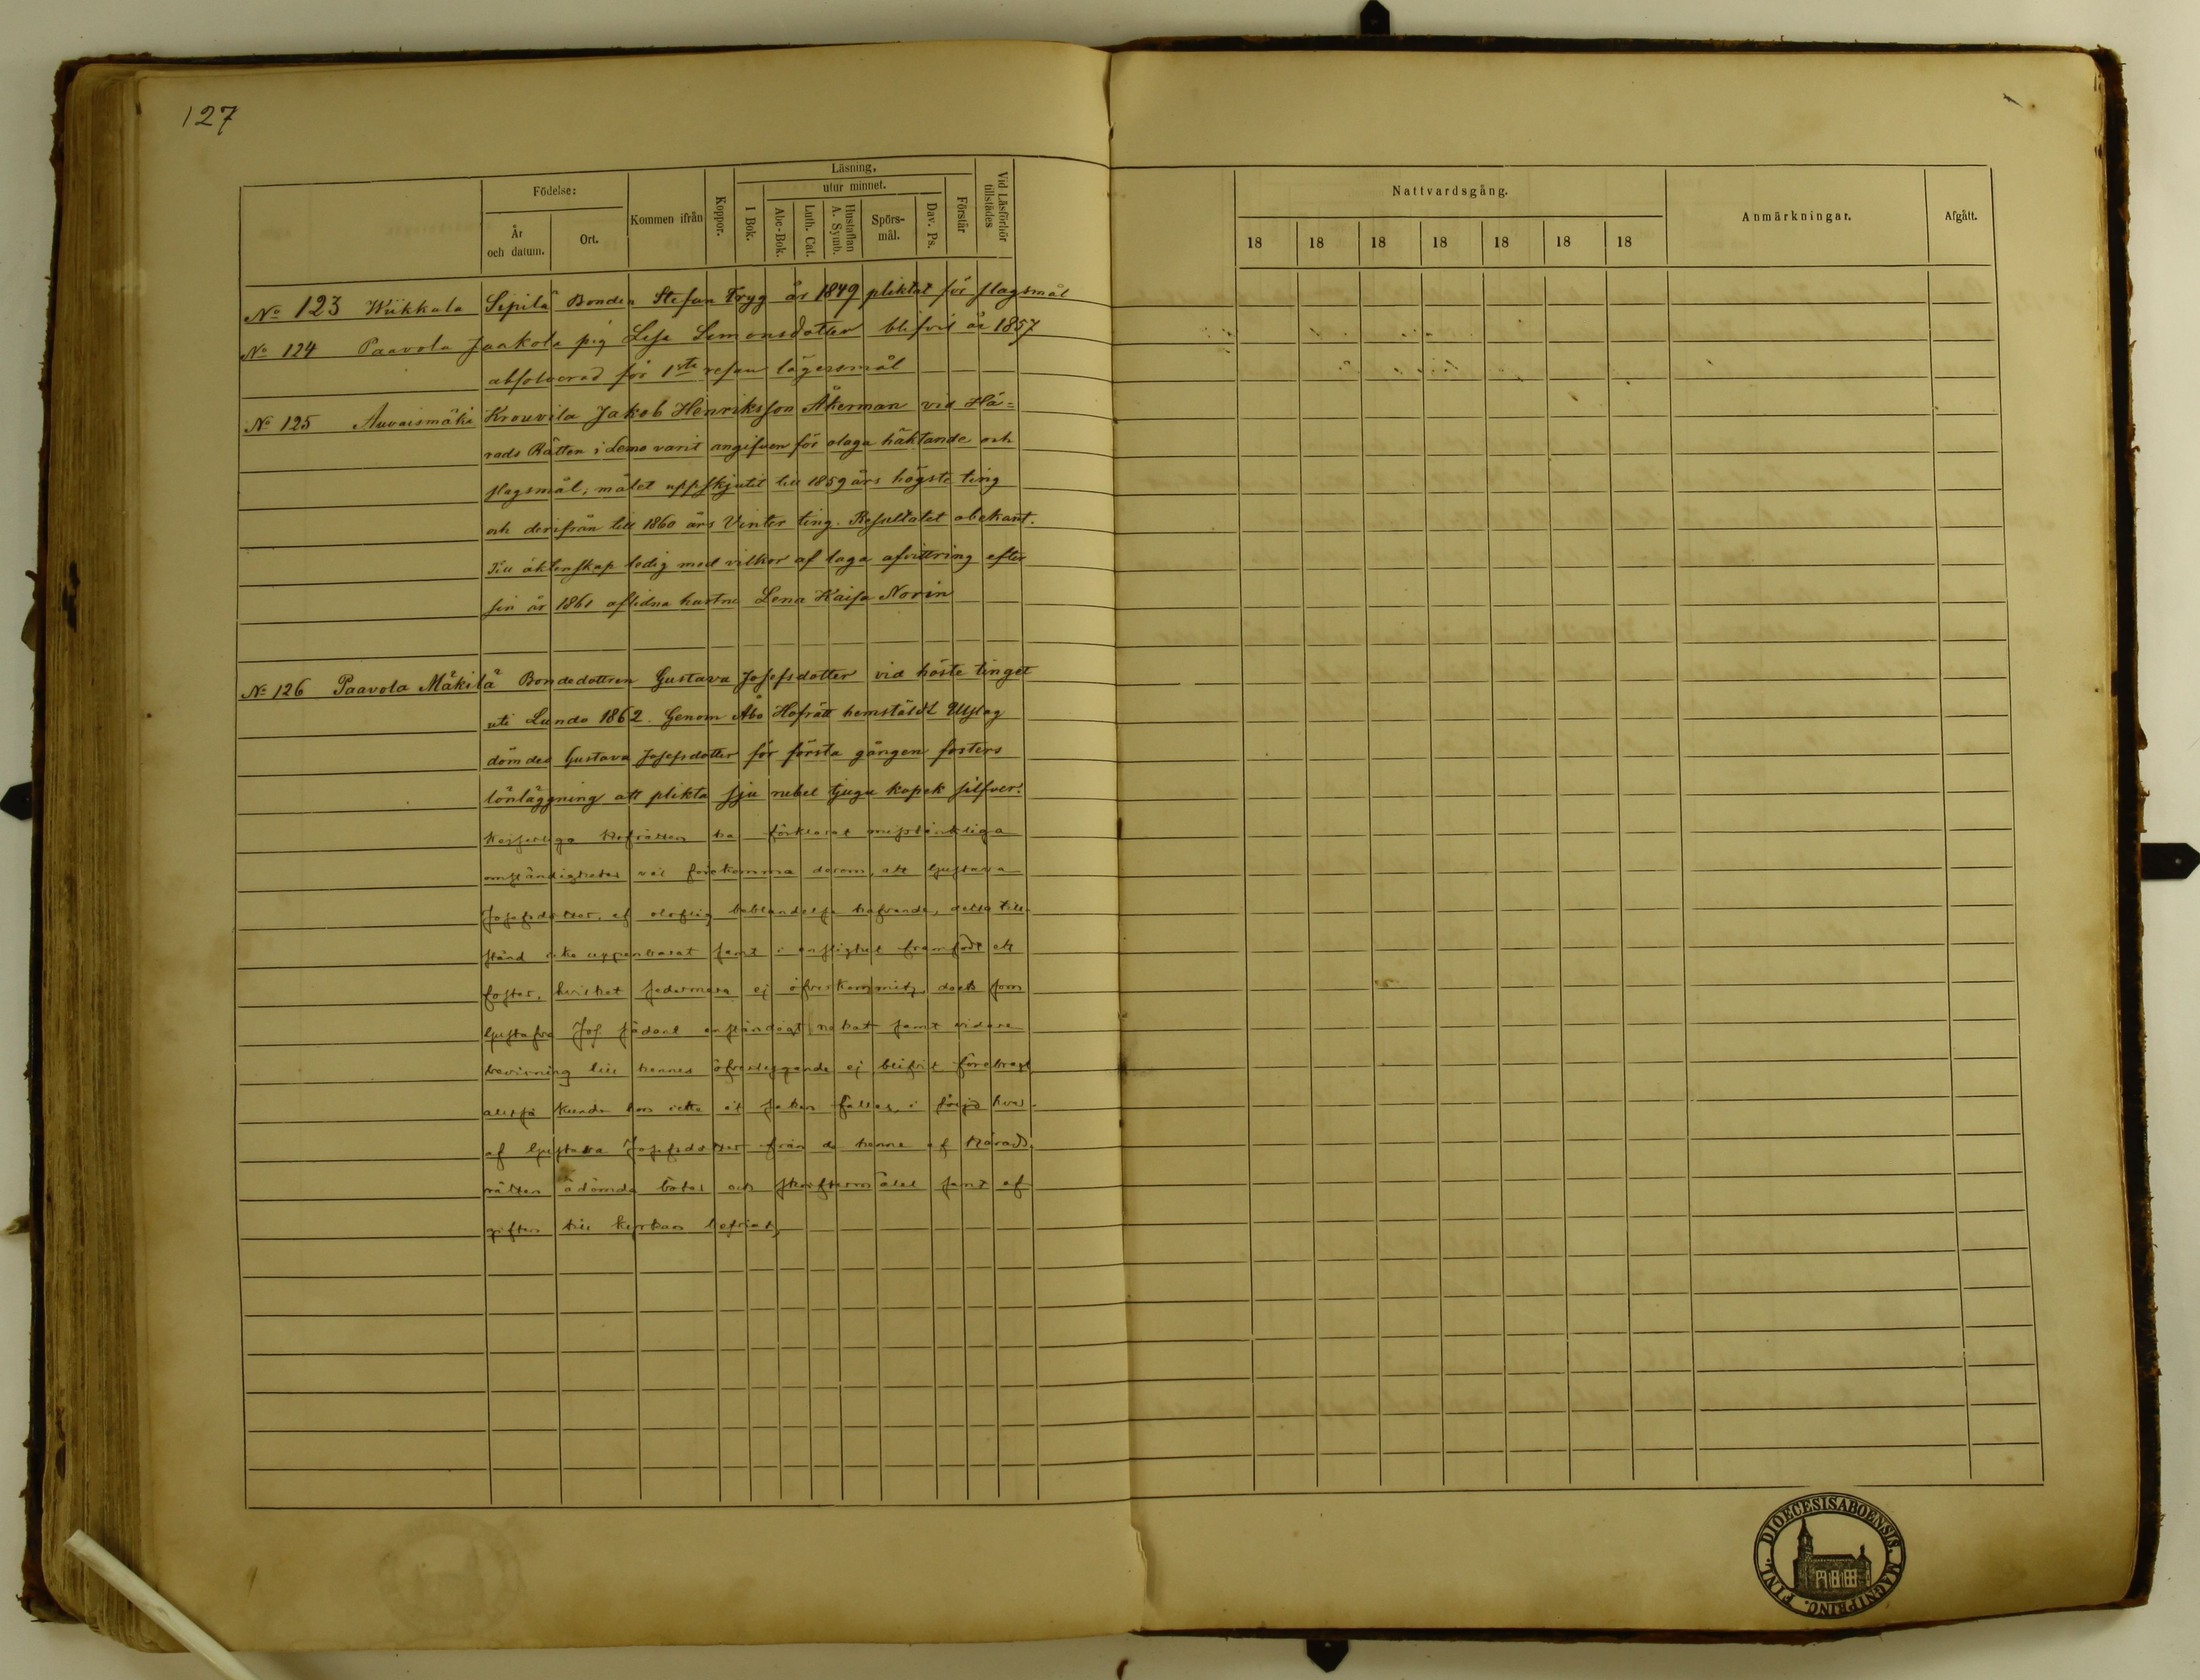 127
Födelse:
År och datum.
Ort.
Kommen ifrån
Koppor.
Läsning,
utur minnet.
I Bok.
Abc-Bok.
Luth. Cat.
Hustaflan A. Symb.
Spörs-mål.
Dav. Ps.
Förstår
Vid Läsförhör tillstädes
Nattvardsgång.
18 18 18 18 18 18 18
Anmärkningar.
Afgått.
No 123 Wiikkala Sipilä Bonden Stefan Tryg år 1849 pliktat för slagsmål
No 124 Paavola Jaakola pig Lisa Simonsdotter blifvit år 1857
absolverad för 1sta resan lägersmål
No 125 Auvaismäki Krouvila Jakob Henriksson Åkerman vid Hä=
rads Rätten i Lemo varit angifven för olaga häktande och
slagsmål; målet uppskjutit till 1859 års höste ting
och derifrån till 1860 års Vinter ting. Resultatet obekant.
Till äktenskap ledig med vilkor af laga afvittring efter
sin år 1861 aflidna hustru Lena Kaisa Norin
No 126 Paavola Mäkilä Bondedottren Gustava Josefsdotter vid höste tinget
uti Lundo 1862. Genom Åbo Hofrätt hemstäldt Utslag
dömdes Gustava Josefsdotter för första gången fosters
lönläggning att plikta sju rubel tjugu kopek silfver.
Kejserliga Hofrätten ha förklarat misstänkliga
omständigheter väl förekomma derom, att Gustava
Josefsdotter, af oloflig beblandelse hafvande, detta till-
stånd icke uppenbarat samt i enslighet framfödt ett
foster, hvilket sedermera ej öfverkommits, dock som
Gustafva Jos. sådant enständigt nekat samt vidare
bevisning till hennes öfvertygande ej blifvit förebragt
alltså kunde hon icke till saken fällas, i följd hvar-
af Gustava Josefsdotter från de henne af Härads
rätten ådömda böter och skriftermålet samt af
giften till kyrkan befriat,
FINL. DIOECESIS ABOENSIS. MAGNI PRINC.